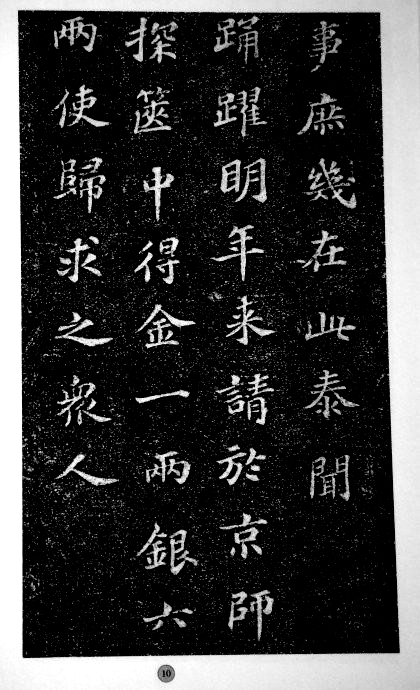 事庶幾在此泰聞
踊躍明年来請於京師
探篋中得金一兩銀六
兩使歸求之衆人
10